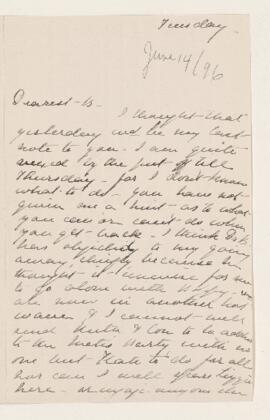 Tuesday.
June 14/96
Dearest - B -
I thought that
yesterday wd be my last
note to you. I am quite
by the put off till
Thursday - for I don't know
what to do - you have not
given me a hint - as to what
you can or can't do when
you get back - I think Dr B.
has objected to my going
away, chiefly because he
thought it unwise for me
to go alone with
are now in another hot
wave & I cannot well
send & Con to
to the party with no
one but to do for all
nor can I well spare Lizzie
here - or anyone